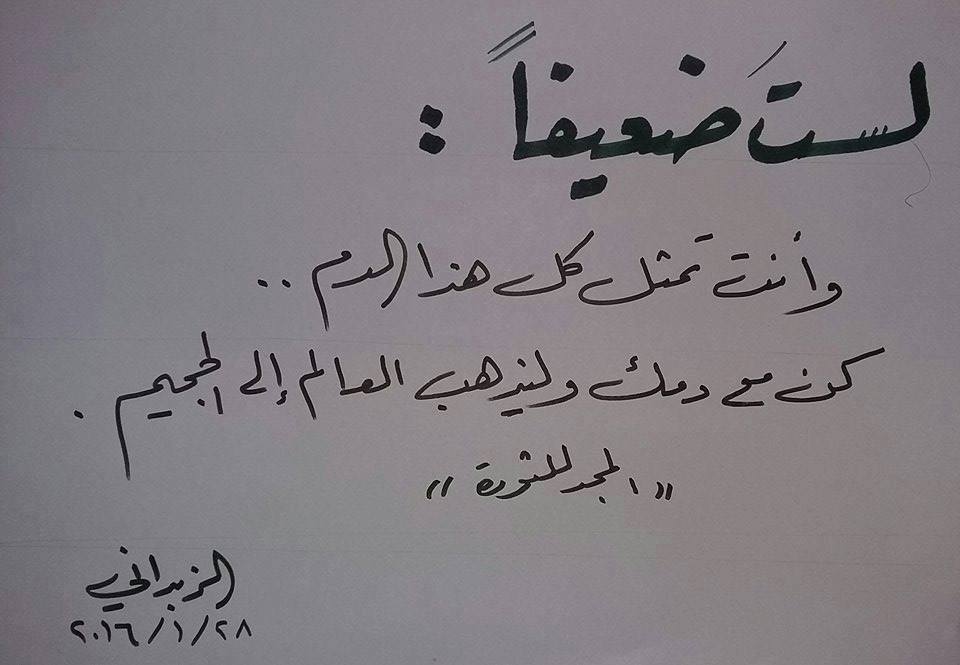 لستَ ضعيفاً :
وأنت تمثل كل هذا الدم ..
كن مع دمك وليذهب العالم إلى الجحيم .
"المجد للثورة"
الزبداني
٢٨/١/٢٠١٦